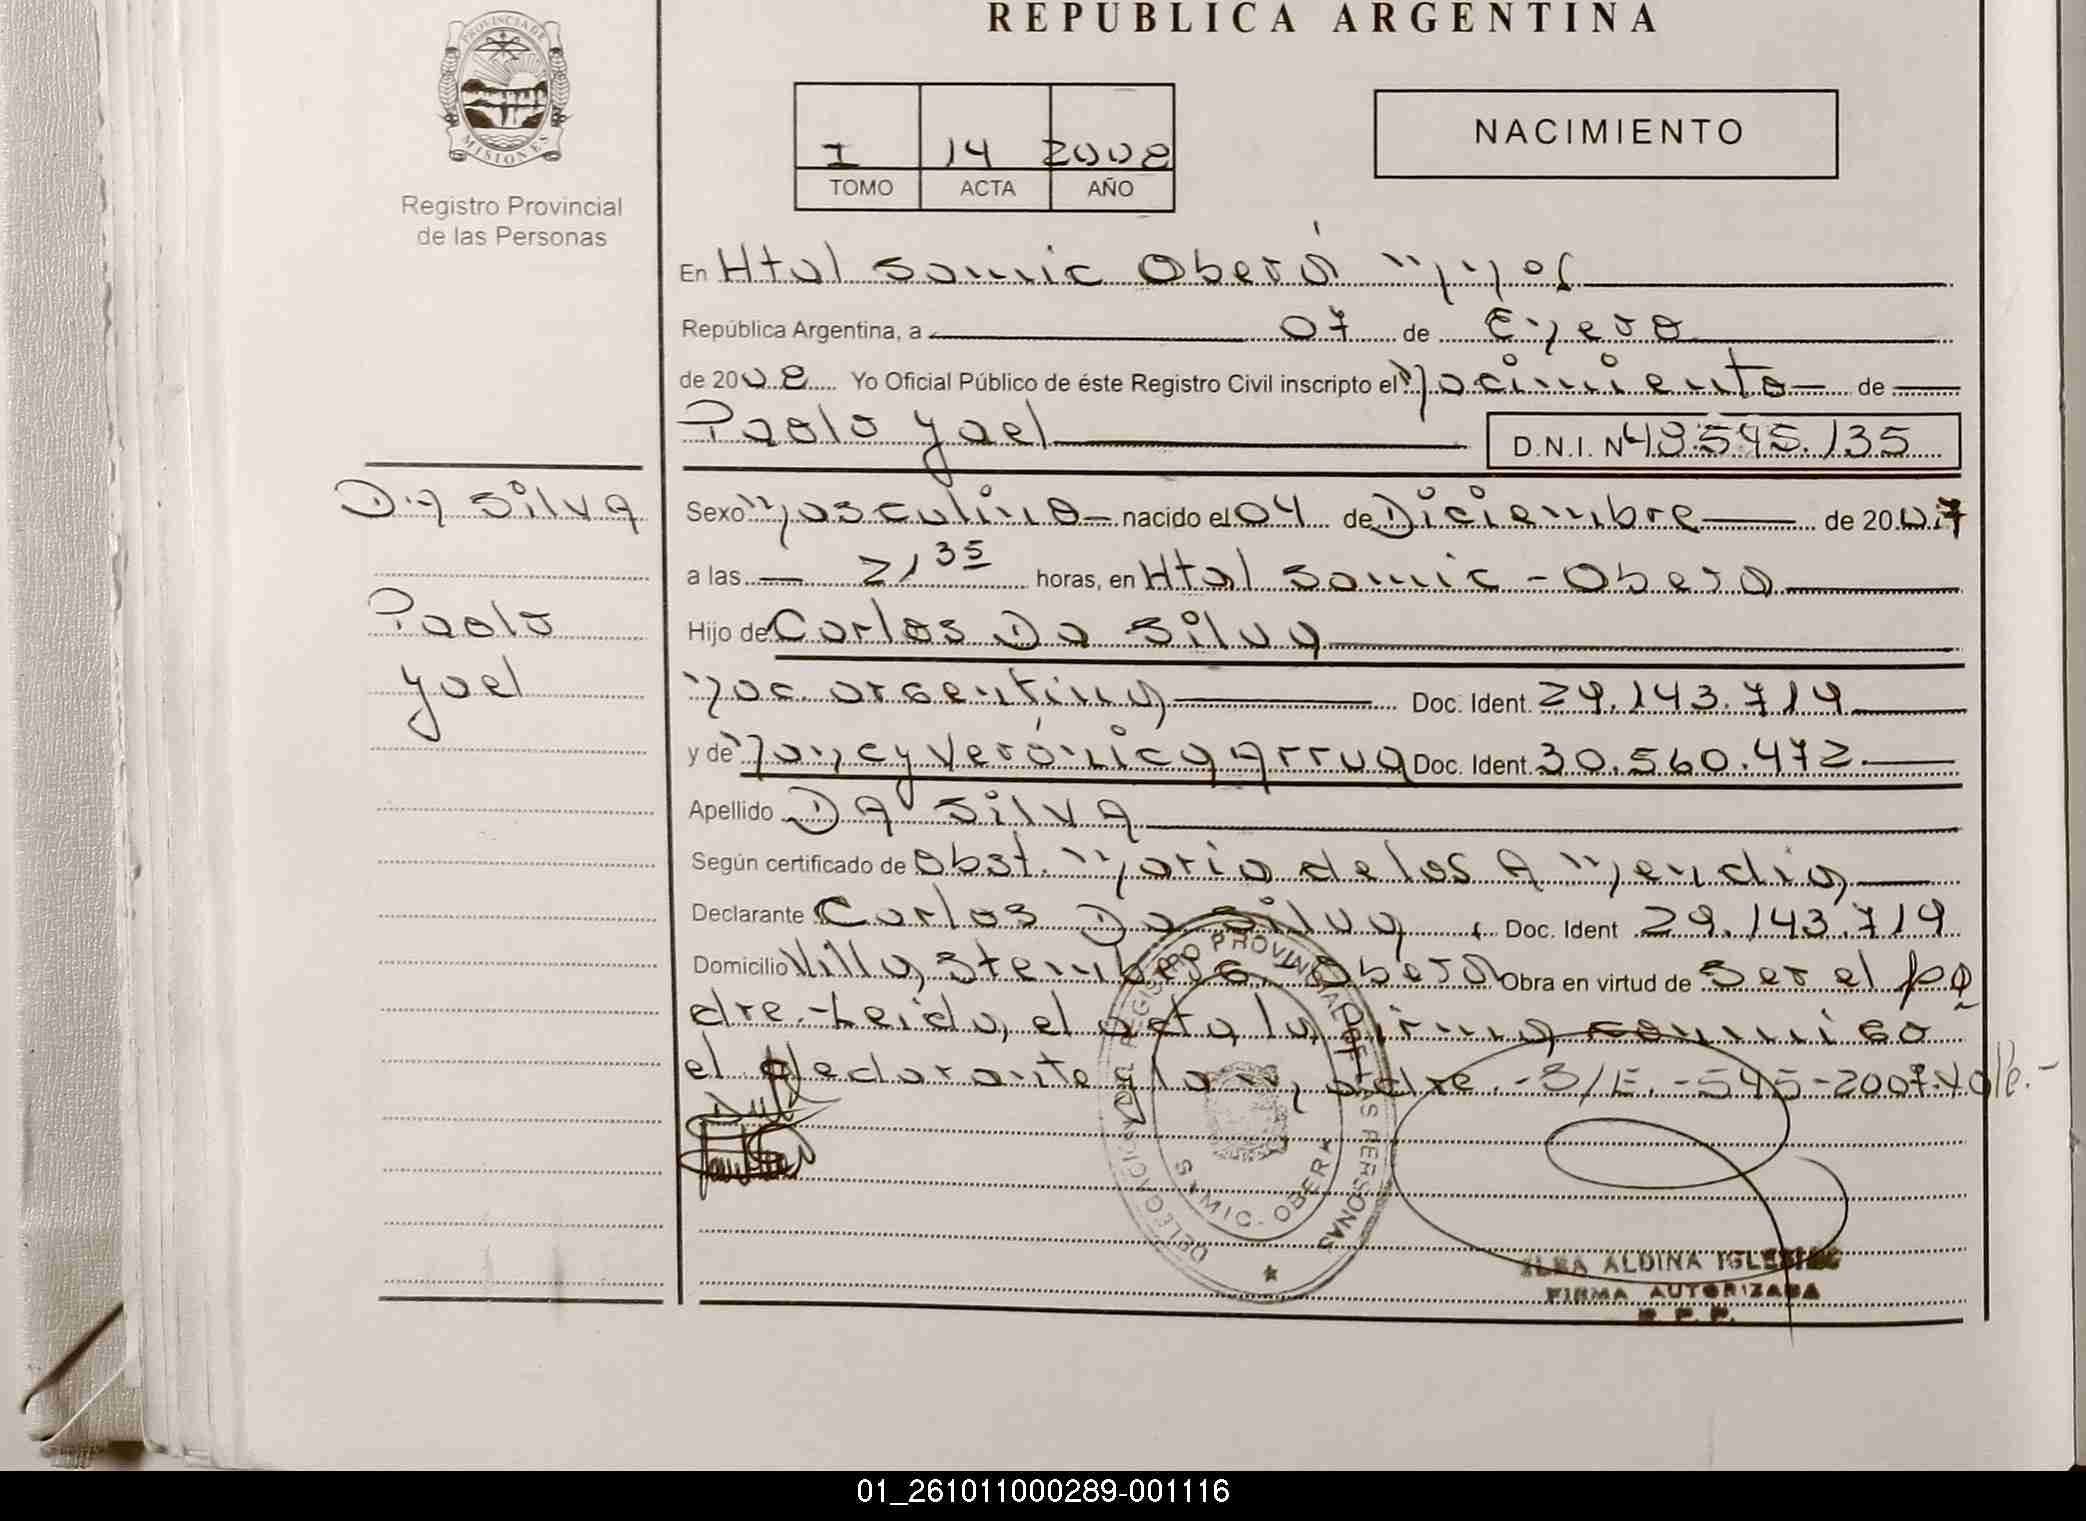 REPUBLICA ARGENTINA
PROVINCIA DE MISIONES
Registro Provincial
de las Personas
I 14 2008
TOMO ACTA AÑO
NACIMIENTO
En Htal Samic Oberá Mnes
República Argentina, a 07 de Enero
de 2008 Yo Oficial Público de éste Registro Civil inscripto el Nacimiento de
Paolo Yael
D.N.I. Nº 48.545.135
DA SILVA
Paolo
Yael
Sexo Masculino nacido el 04 de Diciembre de 2007
a las 21 35 horas, en Htal Samic - Obera
Hijo de Carlos Da Silva
Nac. argentina Doc. Ident. 29.143.719
y de Nancy Verónica Arrua Doc. Ident. 30.560.472.
Apellido DA SILVA
Según certificado de Obst. Maria de los A Mendia
Declarante Carlos Da Silva Doc. Ident 29.143.719
Domicilio Villa Stemberg Oberá Obra en virtud de Ser el pa
dre.-Leida el acta la firma conmigo
el declarante y la madre.-S/E.-545-2007.
DELEGACION DEL REGISTRO PROVINCIAL DE LAS PERSONAS
SAMIC - OBERA
ELBA ALDINA IGLESIAS
FIRMA AUTORIZADA
R. P. P.
01_261011000289-001116